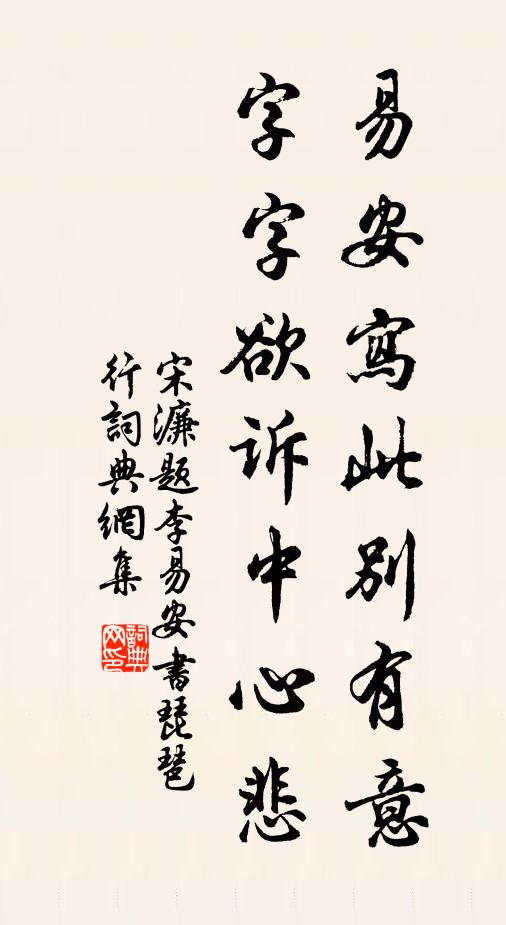 易安寫此別有意
字字欲訴中心悲
宋濂题李易安書琵琶
行詞典網集
詞典網印